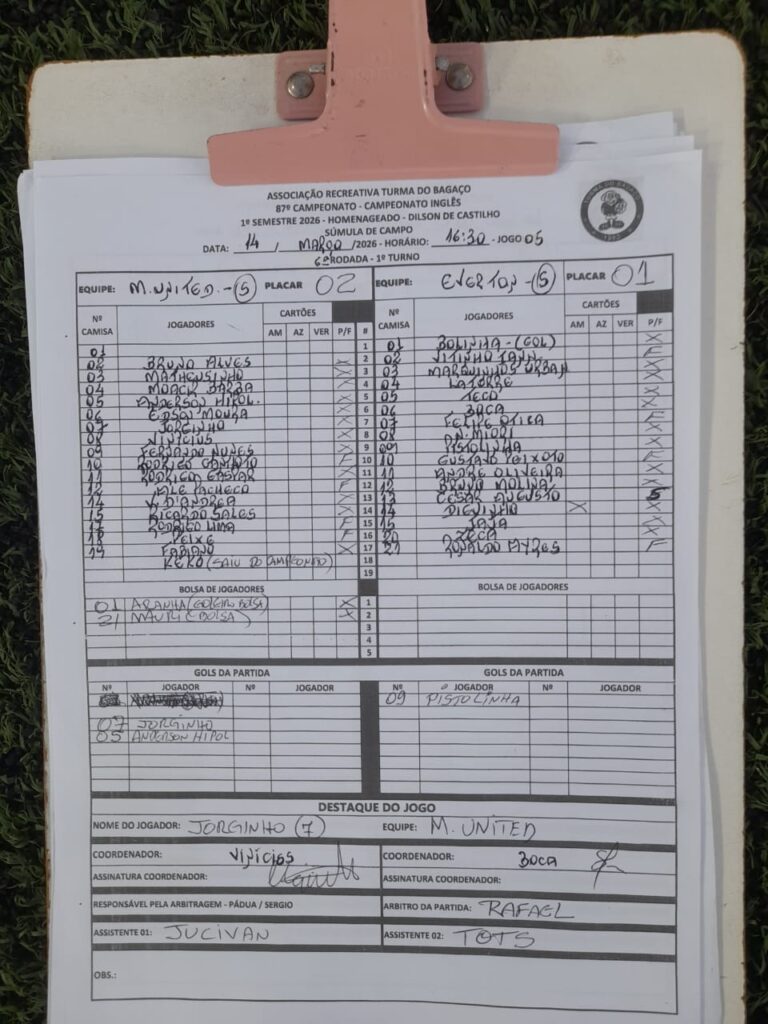 ASSOCIAÇÃO RECREATIVA TURMA DO BAGAÇO
87º CAMPEONATO - CAMPEONATO INGLÊS
1º SEMESTRE 2026 - HOMENAGEADO - DILSON DE CASTILHO
SÚMULA DE CAMPO
DATA: 14 / MARÇO /2026 - HORÁRIO: 16:30 - JOGO 05
6ª RODADA - 1º TURNO
EQUIPE: M.UNITED - (5) PLACAR 02 EQUIPE: EVERTON - (5) PLACAR 01
Nº CAMISA JOGADORES CARTÕES AM AZ VER P/F # Nº CAMISA JOGADORES CARTÕES AM AZ VER P/F
01 1 01 BOLINHA - (GOL) X
02 BRUNO ALVES X 2 02 VITINHO TANN. F
03 MATHEUSINHO X 3 03 MARQUINHOS URBAN X
04 MOACIR BARBA X 4 04 LATORRE X
05 ANDERSON HIPOL. X 5 05 TECO X
06 EDSON MOURA X 6 06 BOCA
07 JORGINHO X 7 07 FELIPE OTICA F
08 VINICIUS X 8 08 X
09 FERNANDO NUNES X 9 09 PISTOLINHA X
10 F 10 10 GUSTAVO PEIXOTO F
11 RODRIGO GASPAR X 11 11 ANDRE OLIVEIRA X
12 ALE PACHECO F 12 12 BRUNO MOLINA F
14 V. D'ANDREA X 13 13 CESAR AUGUSTO S
15 RICARDO SALES X 14 14 DIEGUINHO X X
17 RODRIGO LIMA F 15 15 JAJA X
18 PEIXE F 16 20 ZECA X
19 FABIANO X 17 21 RONALDO AYRES F
KEKO (SAIU DO CAMPEONATO) 18
19
BOLSA DE JOGADORES BOLSA DE JOGADORES
01 ARANHA (GOLEIRO BOLSA) X 1
21 MAURI (BOLSA) X 2
3
4
5
GOLS DA PARTIDA GOLS DA PARTIDA
Nº JOGADOR Nº JOGADOR Nº JOGADOR Nº JOGADOR
09 PISTOLINHA
07 JORGINHO
05 ANDERSON HIPOL
DESTAQUE DO JOGO
NOME DO JOGADOR: JORGINHO (7) EQUIPE: M. UNITED
COORDENADOR: VINÍCIOS COORDENADOR: BOCA
ASSINATURA COORDENADOR: ASSINATURA COORDENADOR:
RESPONSÁVEL PELA ARBITRAGEM - PÁDUA / SERGIO ARBITRO DA PARTIDA: RAFAEL
ASSISTENTE 01: JUCIVAN ASSISTENTE 02: TOTS
OBS.: